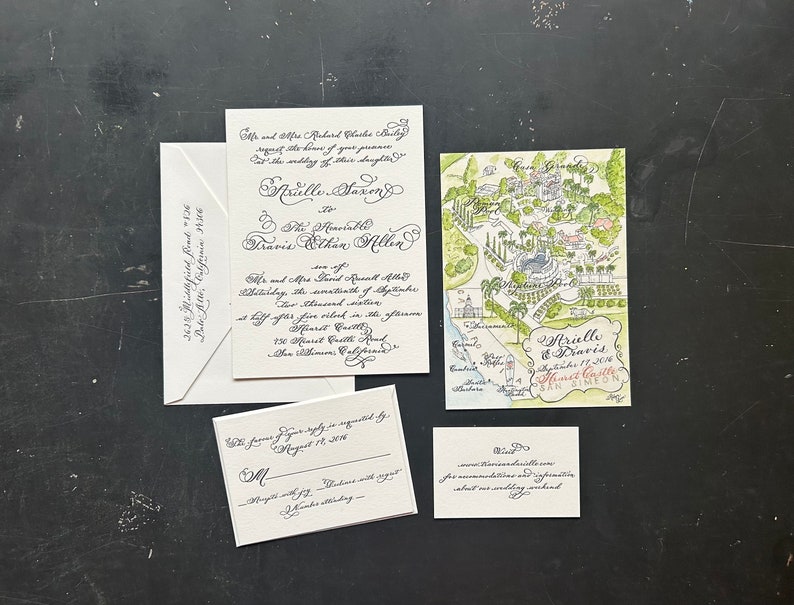 Mr. and Mrs. Richard Charles Bailey
request the honor of your presence
at the wedding of their daughter
Arielle Saxon
to
The Honorable
Travis Ethan Allen
son of
Mr and Mrs David Russell Allen
Saturday, the seventeenth of September
two thousand sixteen
at half after five o'clock in the afternoon
Hearst Castle
750 Hearst Castle Road
San Simeon, California
2627 Middlefield Road #826
Palo Alto, California 94306
Casa Grande
Roman
Pool
Neptune Pool
Sacramento
Carmel
Paso
Robles
Cambria
Santa
Barbara
Arielle
& Travis
September 17, 2016
Hearst Castle
SAN SIMEON
The favour of your reply is requested by
August 17, 2016
M
Accepts with joy
Declines with regret
Number attending
Visit
www.travisandarielle.com
for accommodations and information
about our wedding weekend